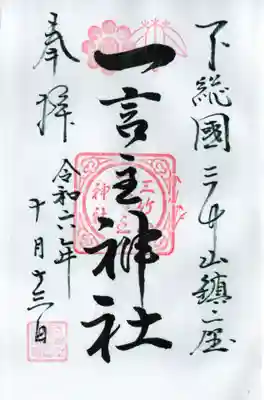 下総國三竹山鎮座
一言主神社
奉拝
令和六年
十月十三日